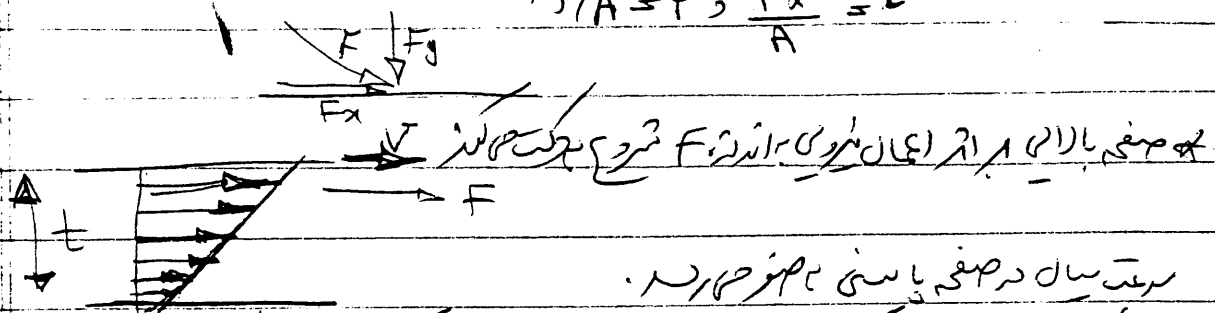 F Fy
Fx
* صفحه بالائی بر اثر اعمال نیروی به اندازه F شروع به حرکت می کند
V
F
t
سرعت سیال در صفحه پائینی به صفر می رسد.